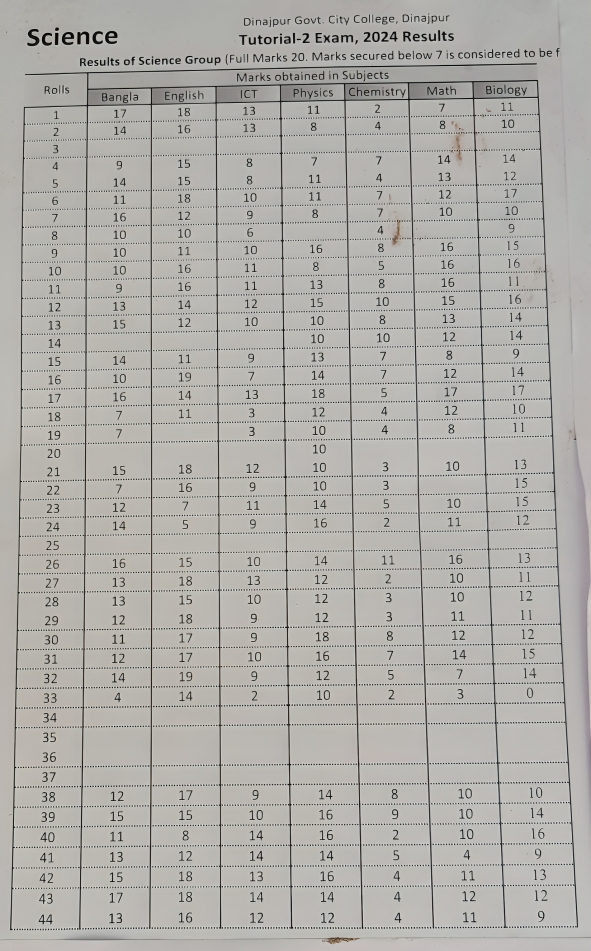 Dinajpur Govt. City College, Dinajpur
Science
Tutorial-2 Exam, 2024 Results
Results of Science Group (Full Marks 20. Marks secured below 7 is considered to be f
Rolls Marks obtained in Subjects
Bangla English ICT Physics Chemistry Math Biology
1 17 18 13 11 2 7 11
2 14 16 13 8 4 8 10
3
4 9 15 8 7 7 14 14
5 14 15 8 11 4 13 12
6 11 18 10 11 7 12 17
7 16 12 9 8 7 10 10
8 10 10 6 4 9
9 10 11 10 16 8 16 15
10 10 16 11 8 5 16 16
11 9 16 11 13 8 16 11
12 13 14 12 15 10 15 16
13 15 12 10 10 8 13 14
14 10 10 12 14
15 14 11 9 13 7 8 9
16 10 19 7 14 7 12 14
17 16 14 13 18 5 17 17
18 7 11 3 12 4 12 10
19 7 3 10 4 8 11
20 10
21 15 18 12 10 3 10 13
22 7 16 9 10 3 15
23 12 7 11 14 5 10 15
24 14 5 9 16 2 11 12
25
26 16 15 10 14 11 16 13
27 13 18 13 12 2 10 11
28 13 15 10 12 3 10 12
29 12 18 9 12 3 11 11
30 11 17 9 18 8 12 12
31 12 17 10 16 7 14 15
32 14 19 9 12 5 7 14
33 4 14 2 10 2 3 0
34
35
36
37
38 12 17 9 14 8 10 10
39 15 15 10 16 9 10 14
40 11 8 14 16 2 10 16
41 13 12 14 14 5 4 9
42 15 18 13 16 4 11 13
43 17 18 14 14 4 12 12
44 13 16 12 12 4 11 9